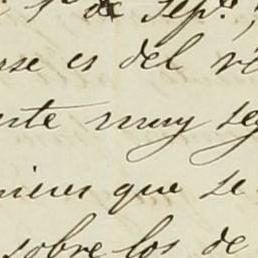 1º de Sepᵉ.,
rse es del re
nte muy seg
nieus que se
sobre los de